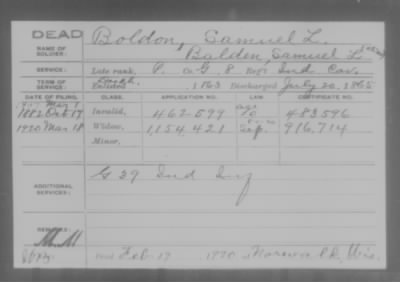 DEAD
NAME OF SOLDIER: Boldon, Samuel L.
Balden, Samuel L
SERVICE: Late rank, P. Co. G, 8 Reg't Ind Cav.
TERM OF SERVICE: Enlisted , 1863 Discharged July 20, 1865
DATE OF FILING. CLASS. APPLICATION NO. LAW. CERTIFICATE NO.
1882 Oct 17 Invalid, 462-599 483596
1920 Mar 18 Widow, 1,154,421 Sep. 916,714
Minor,
ADDITIONAL SERVICES: G 39 Ind Inf
REMARKS:
Died Feb 17, 1920, Norwalk, Wis.